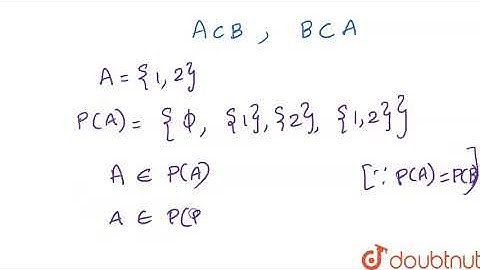 A⊂B, B⊂A
A = {1, 2}
P(A) = {ϕ, {1}, {2}, {1,2}}
A ∈ P(A) [∵ P(A) = P(B)]
A ∈ P(φ
doubtnut